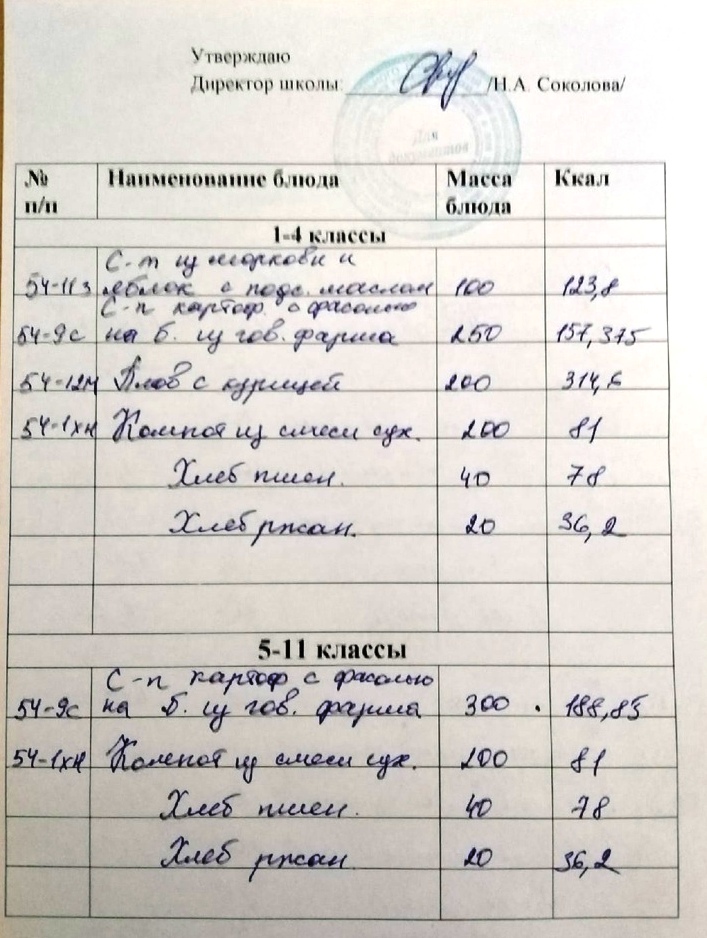 Утверждаю
Директор школы: /Н.А. Соколова/
Для
документов
№ п/п Наименование блюда Масса блюда Ккал
1-4 классы
С-т из моркови и
54-11з яблок с подс. маслом 100 123,8
С-п картоф. с фасолью
54-9с на б. из гов. фарша 250 157,375
54-12м Плов с курицей 200 314,6
54-1хн Компот из смеси сух. 200 81
Хлеб пшен. 40 78
Хлеб ржан. 20 36,2
5-11 классы
С-п картоф с фасолью
54-9с на б. из гов. фарша 300 188,85
54-1хн Компот из смеси сух. 200 81
Хлеб пшен. 40 78
Хлеб ржан 20 36,2